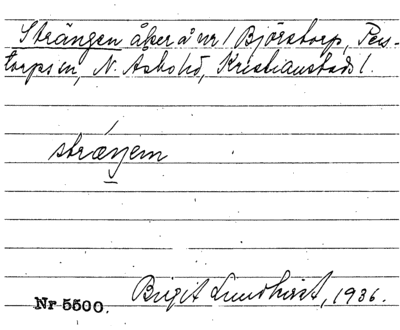 Strängen åker å nr 1 Björstorp, Pers-
torps sn, N. Åsbo hd, Kristianstads l.
stræŋem
Birgit Lundkvist, 1936.
Nr 5500.